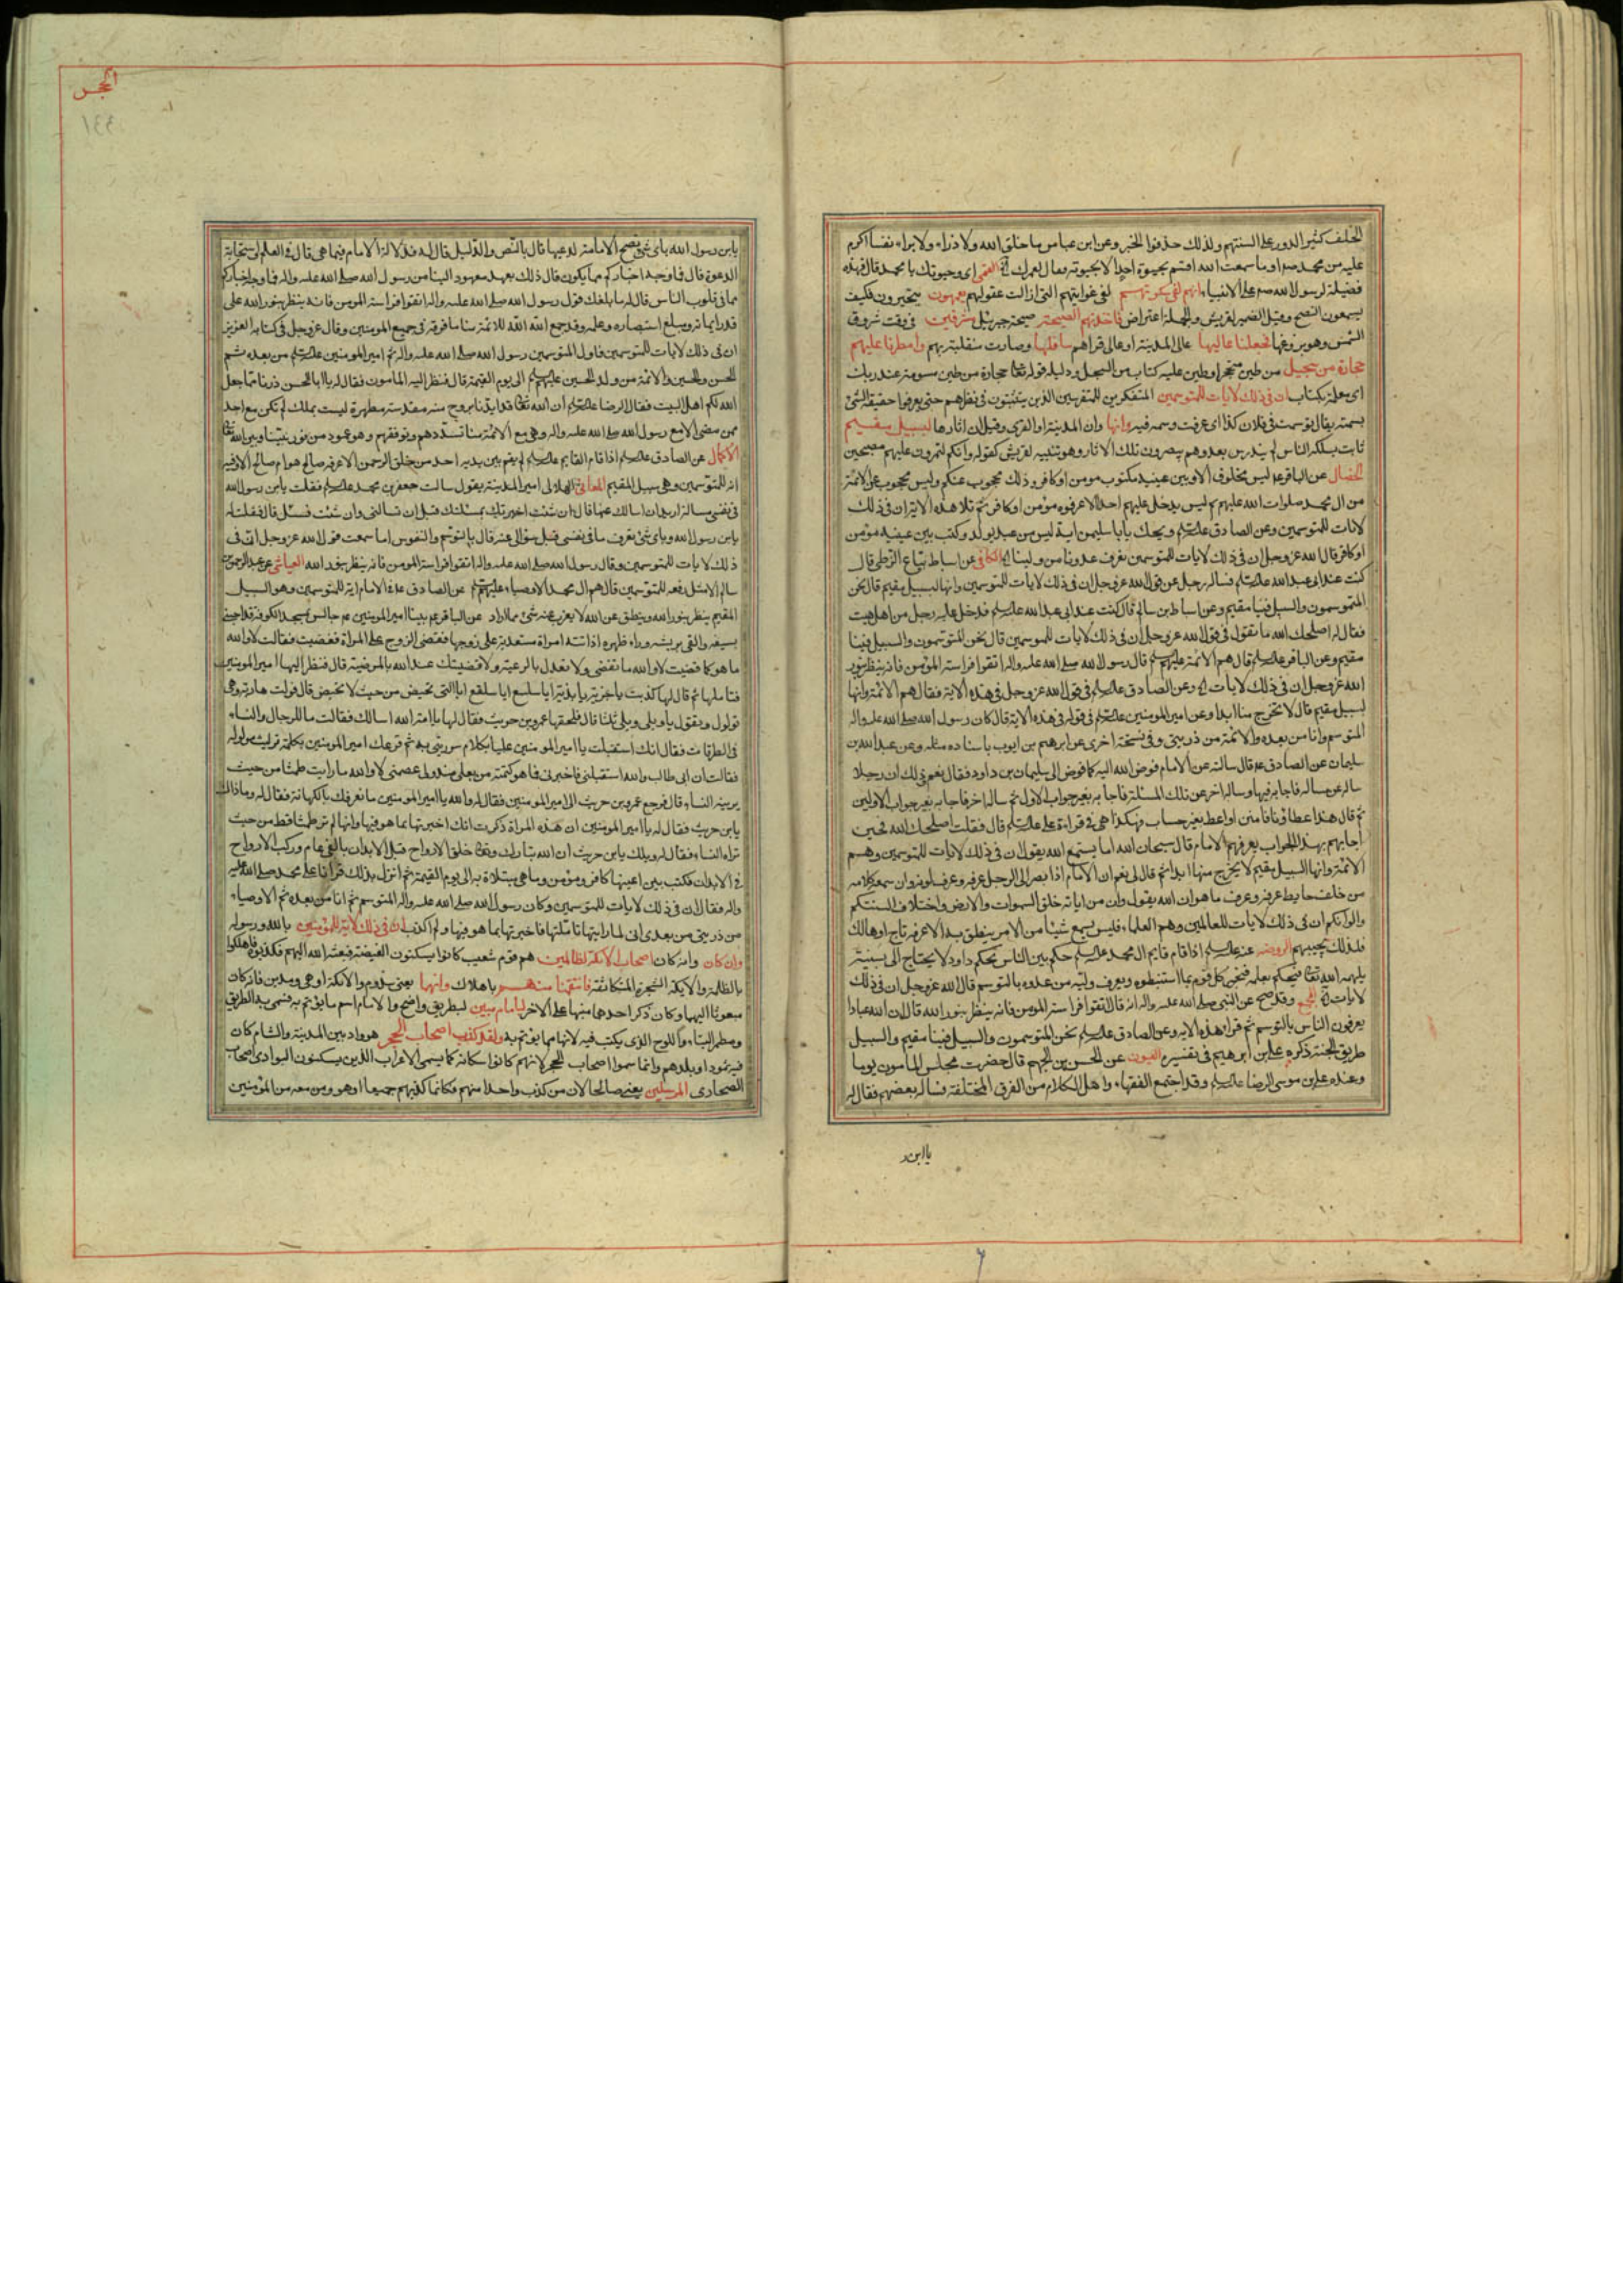 الحلف كثير الدور على السنتهم ولذلك حذفوا الخبر وعن ابن عباس ما خلق الله ولا ذراء ولا براء نفسا اكرم
عليه من محمد صم وما سمعت الله اقسم بحيوة احد الا بحيوته فقال لعمرك القمى اى وحيوتك يا محمد قال فهذه
فضيلة لرسول الله صم على الانبياء انهم لفى سكرتهم لفى غوايتهم التى ازالت عقولهم يعمهون يتحيرون فكيف
يسمعون النصح وقيل الضمير لقريش والجملة اعتراض فاخذتهم الصيحة صيحة جبرئيل مشرقين فى وقت شروق
الشمس وهو بزوغها فجعلنا عاليها عالى المدينة او عالى قراهم سافلها وصارت منقلبة بهم وامطرنا عليهم
حجارة من سجيل من طين متحجر او طين عليه كتاب من السجل ودليله قوله تعا حجارة من طين مسومة عند ربك
اى معلمة بكتاب ان فى ذلك لايات للمتوسمين المتفكرين المتفرسين الذين يتثبتون فى نظرهم حتى يعرفوا حقيقة الشئ
بسمته يقال توسمت فى فلان كذا اى عرفت وسمه فيه وانها وان المدينة او القرى وقيل ان اثارها لبسبيل مقيم
ثابت يسلكه الناس لم يندرس بعد وهم يبصرون تلك الاثار وهو تنبيه لقريش كقوله وانكم لتمرون عليهم مصبحين
الخصال عن الباقر عم ليس مخلوق الا وبين عينيه مكتوب مومن او كافر وذلك محجوب عنكم وليس محجوب عن الائمة
من ال محمد صلوات الله عليهم ثم ليس يدخل عليهم احد الا عرفوه مؤمن او كافر ثم تلا هذه الاية ان فى ذلك
لايات للمتوسمين وعن الصادق عليه السلم ويحك يا با سليمن انه ليس من عبد يولد وكتب بين عينيه مؤمن
او كافر قال الله عز وجل ان فى ذلك لايات للمتوسمين نعرف عدونا من ولينا الكافى عن اسباط بياع الزطى قال
كنت عند ابى عبد الله عليه السلم فساله رجل عن قول الله عز وجل ان فى ذلك لايات للمتوسمين وانها لبسبيل مقيم قال نحن
المتوسمون والسبيل فينا مقيم وعن اسباط بن سالم قال كنت عند ابى عبد الله عليه السلم فدخل عليه رجل من اهل هيت
فقال له اصلحك الله ما تقول فى قول الله عز وجل ان فى ذلك لايات للمتوسمين قال نحن المتوسمون والسبيل فينا
مقيم وعن الباقر عليه السلم قال هم الائمة عليهم السلم قال رسول الله صلى الله عليه واله اتقوا فراسة المؤمن فانه ينظر بنور
الله عز وجل ان فى ذلك لايات وعن الصادق عليه السلم فى قول الله عز وجل فى هذه الاية فقال هم الائمة وانها
لبسبيل مقيم قال لا تخرج منا ابدا وعن امير المومنين عليه السلم فى قوله فى هذه الاية قال كان رسول الله صلى الله عليه واله
المتوسم وانا من بعده والائمة من ذريتى وفى نسخة اخرى عن ابرهيم بن ايوب باسناده مثله وعن عبد الله بن
سليمان عن الصادق عم قال سالته عن الامام فوض الله اليه كما فوض الى سليمان بن داود فقال نعم وذلك ان رجلا
ساله عن مسالة فاجابه فيها وساله اخر عن تلك المسئلة فاجابه بغير جواب الاول ثم ساله اخر فاجابه بغير جواب الاولين
ثم قال هذا عطاؤنا فامنن او اعط بغير حساب وهكذا هى فى قراءة على عليه السلم قال فقلت اصلحك الله فحين
اجابهم بهذا الجواب يعرفهم الامام قال سبحان الله اما يسمع الله يقول ان فى ذلك لايات للمتوسمين وهم
الائمة وانها لبسبيل مقيم لا يخرج منها ابدا ثم قال لى نعم ان الامام اذا ابصر الى الرجل عرفه وعرف لونه وان سمع كلامه
من خلف حايط عرفه وعرف ما هو ان الله يقول ومن اياته خلق السموات والارض واختلاف السنتكم
والوانكم ان فى ذلك لايات للعالمين وهم العلماء فليس يسمع شيئا من الامر ينطق به الا عرفه ناج او هالك
فلذلك يجيبهم الروضه عنه عليه السلم اذا قام قايم ال محمد عليه السلم حكم بين الناس بحكم داود لا يحتاج الى بينة
يلهمه الله تعا فيحكم بعلمه فيخبر كل قوم بما استنبطوه ويعرف وليه من عدوه بالتوسم قال الله عز وجل ان فى ذلك
لايات المجمع وقد صح عن النبى صلى الله عليه واله انه قال اتقوا فراسة المومن فانه ينظر بنور الله قال ان لله عبادا
يعرفون الناس بالتوسم ثم قرا هذه الاية وعن الصادق عليه السلم نحن المتوسمون والسبيل فينا مقيم والسبيل
طريق الجنة ذكره على بن ابرهيم فى تفسيره العيون عن الحسن بن الجهم قال حضرت مجلس المامون يوما
وعنده على بن موسى الرضا عليه السلم وقد اجتمع الفقهاء واهل الكلام من الفرق المختلفة فساله بعضهم فقال له
يا ابن ر
الحجر
يابن رسول الله باى شئ تصح الامامة لمدعيها قال بالنص والدليل قال له فدلالة الامام فيما هى قال فى العلم واستجابة
الدعوة قال فما وجه اخباركم مما يكون قال ذلك بعهد معهود الينا من رسول الله صلى الله عليه واله قال فما وجه اخباركم
مما فى قلوب الناس قال له ما بلغك قول رسول الله صلى الله عليه واله اتقوا فراسة المومن فانه ينظر بنور الله على
قدر ايمانه ومبلغ استبصاره وعلمه وقد جمع الله للائمة منا ما فرقه فى جميع المومنين وقال عز وجل فى كتابه العزيز
ان فى ذلك لايات للمتوسمين فاول المتوسمين رسول الله صلى الله عليه واله ثم امير المومنين عليه السلم من بعده ثم
الحسن والحسين والائمة من ولد الحسين عليهم السلم الى يوم القيمة قال فنظر اليه المامون فقال له يا ابا الحسن زدنا مما جعل
الله لكم اهل البيت فقال الرضا عليه السلم ان الله تعا قد ايدنا بروح منه مقدسة مطهرة ليست بملك لم تكن مع احد
ممن مضى الا مع رسول الله صلى الله عليه واله وهى مع الائمة منا تسددهم وتوفقهم وهو عمود من نور بيننا وبين الله تعا
الاكمال عن الصادق عليه السلم اذا قام القايم عليه السلم لم يقم بين يديه احد من خلق الرحمن الا عرفه صالح هو ام طالح الا وفيه
اية للمتوسمين وهى سبيل المقيم المعانى الهلالى امير المدينة يقول سالت جعفر بن محمد عليه السلم فقلت يابن رسول الله
فى نفسى مسالة اريد ان اسالك عنها قال ان شئت اخبرتك بمسئلتك قبل ان تسالنى وان شئت فسئل قال فقلت له
يابن رسول الله وباى شئ تعرف ما فى نفسى قبل سؤالى عنه قال بالتوسم والتفرس اما سمعت قول الله عز وجل ان فى
ذلك لايات للمتوسمين وقال رسول الله صلى الله عليه واله اتقوا فراسة المومن فانه ينظر بنور الله العياشى عن عبد الرحمن بن
سالم الاشل رفعه للمتوسمين قال هم ال محمد الاوصياء عليهم السلم عن الصادق عم فى الامام اية للمتوسمين وهو السبيل
المقيم ينظر بنور الله وينطق عن الله لا يعزب عنه شئ مما اراد عن الباقر عم بينا امير المومنين عم جالس بمسجد الكوفة قد احتبى
بسيفه والقى برنسه وراء ظهره اذ اتته امراة مستعدية على زوجها فقضى للزوج على المراة فغضبت فقالت لا والله
ما هو كما قضيت لا والله ما تقضى بالسوية ولا تعدل بالرعية ولا قضيتك عند الله بالمرضية قال فنظر اليها امير المومنين
فتاملها ثم قال لها كذبت يا جرية يا بذية ايا سلسع ايا سلفع ايا التى تحيض من حيث لا تحيض قال فولت هاربة وهى
تولول وتقول يا ويلى ويلى ثلثا قال فلحقها عمرو بن حريث فقال لها يا امة الله اسالك فقالت ما للرجال والنساء
فى الطرقات فقال انك استقبلت يا امير المومنين عليا بكلام سررتنى به ثم قرعك امير المومنين بكلمة فوليت مولولة
فقالت ان ابن ابى طالب والله استقبلنى فاخبرنى بما هو كتمته من بعلى منذ ولى عصمتى لا والله ما رايت طمثا من حيث
يرينه النساء قال فرجع عمرو بن حريث الى امير المومنين فقال له والله يا امير المومنين ما نعرفك بالكهانة فقال له وما ذلك
يابن حريث فقال له يا امير المومنين ان هذه المراة ذكرت انك اخبرتها بما هو فيها وانها لم تر طمثا قط من حيث
تراه النساء فقال له ويلك يابن حريث ان الله تبارك وتعا خلق الارواح قبل الابدان بالفى عام وركب الارواح
فى الابدان فكتب بين اعينها كافر ومؤمن وما هى مبتلاة به الى يوم القيمة ثم انزل بذلك قرانا على محمد صلى الله عليه
واله فقال ان فى ذلك لايات للمتوسمين وكان رسول الله صلى الله عليه واله المتوسم ثم انا من بعده ثم الاوصياء
من ذريتى من بعدى انى لما رايتها تاملتها فاخبرتها بما هو فيها ولم اكذب ان فى ذلك لاية للمؤمنين بالله ورسوله
وان كان وانه كان اصحاب الايكة لظالمين هم قوم شعيب كانوا يسكنون الغيضة فبعثه الله اليهم فكذبوه فاهلكوا
بالظلة والايكة الشجرة المتكاثفة فانتقمنا منهم باهلاك وانهما يعنى سدوم والايكة او هى ومدين فانه كان
مبعوثا اليهما وكان ذكر احدهما منبها على الاخر لبامام مبين لبطريق واضح والامام اسم ما يؤتم به فسمى به الطريق
ومطمر البناء واللوح الذى يكتب فيه لانها مما يؤتم به ولقد كذب اصحاب الحجر هو واد بين المدينة والشام كان
فيه ثمود او بلدهم وانما سموا اصحاب الحجر لانهم كانوا سكانه كما يسمى الاعراب الذين يسكنون البوادى اصحاب
الصحارى المرسلين يعنى صالحا لان من كذب واحدا منهم فكانما كذبهم جميعا او هو ومن معه من المؤمنين